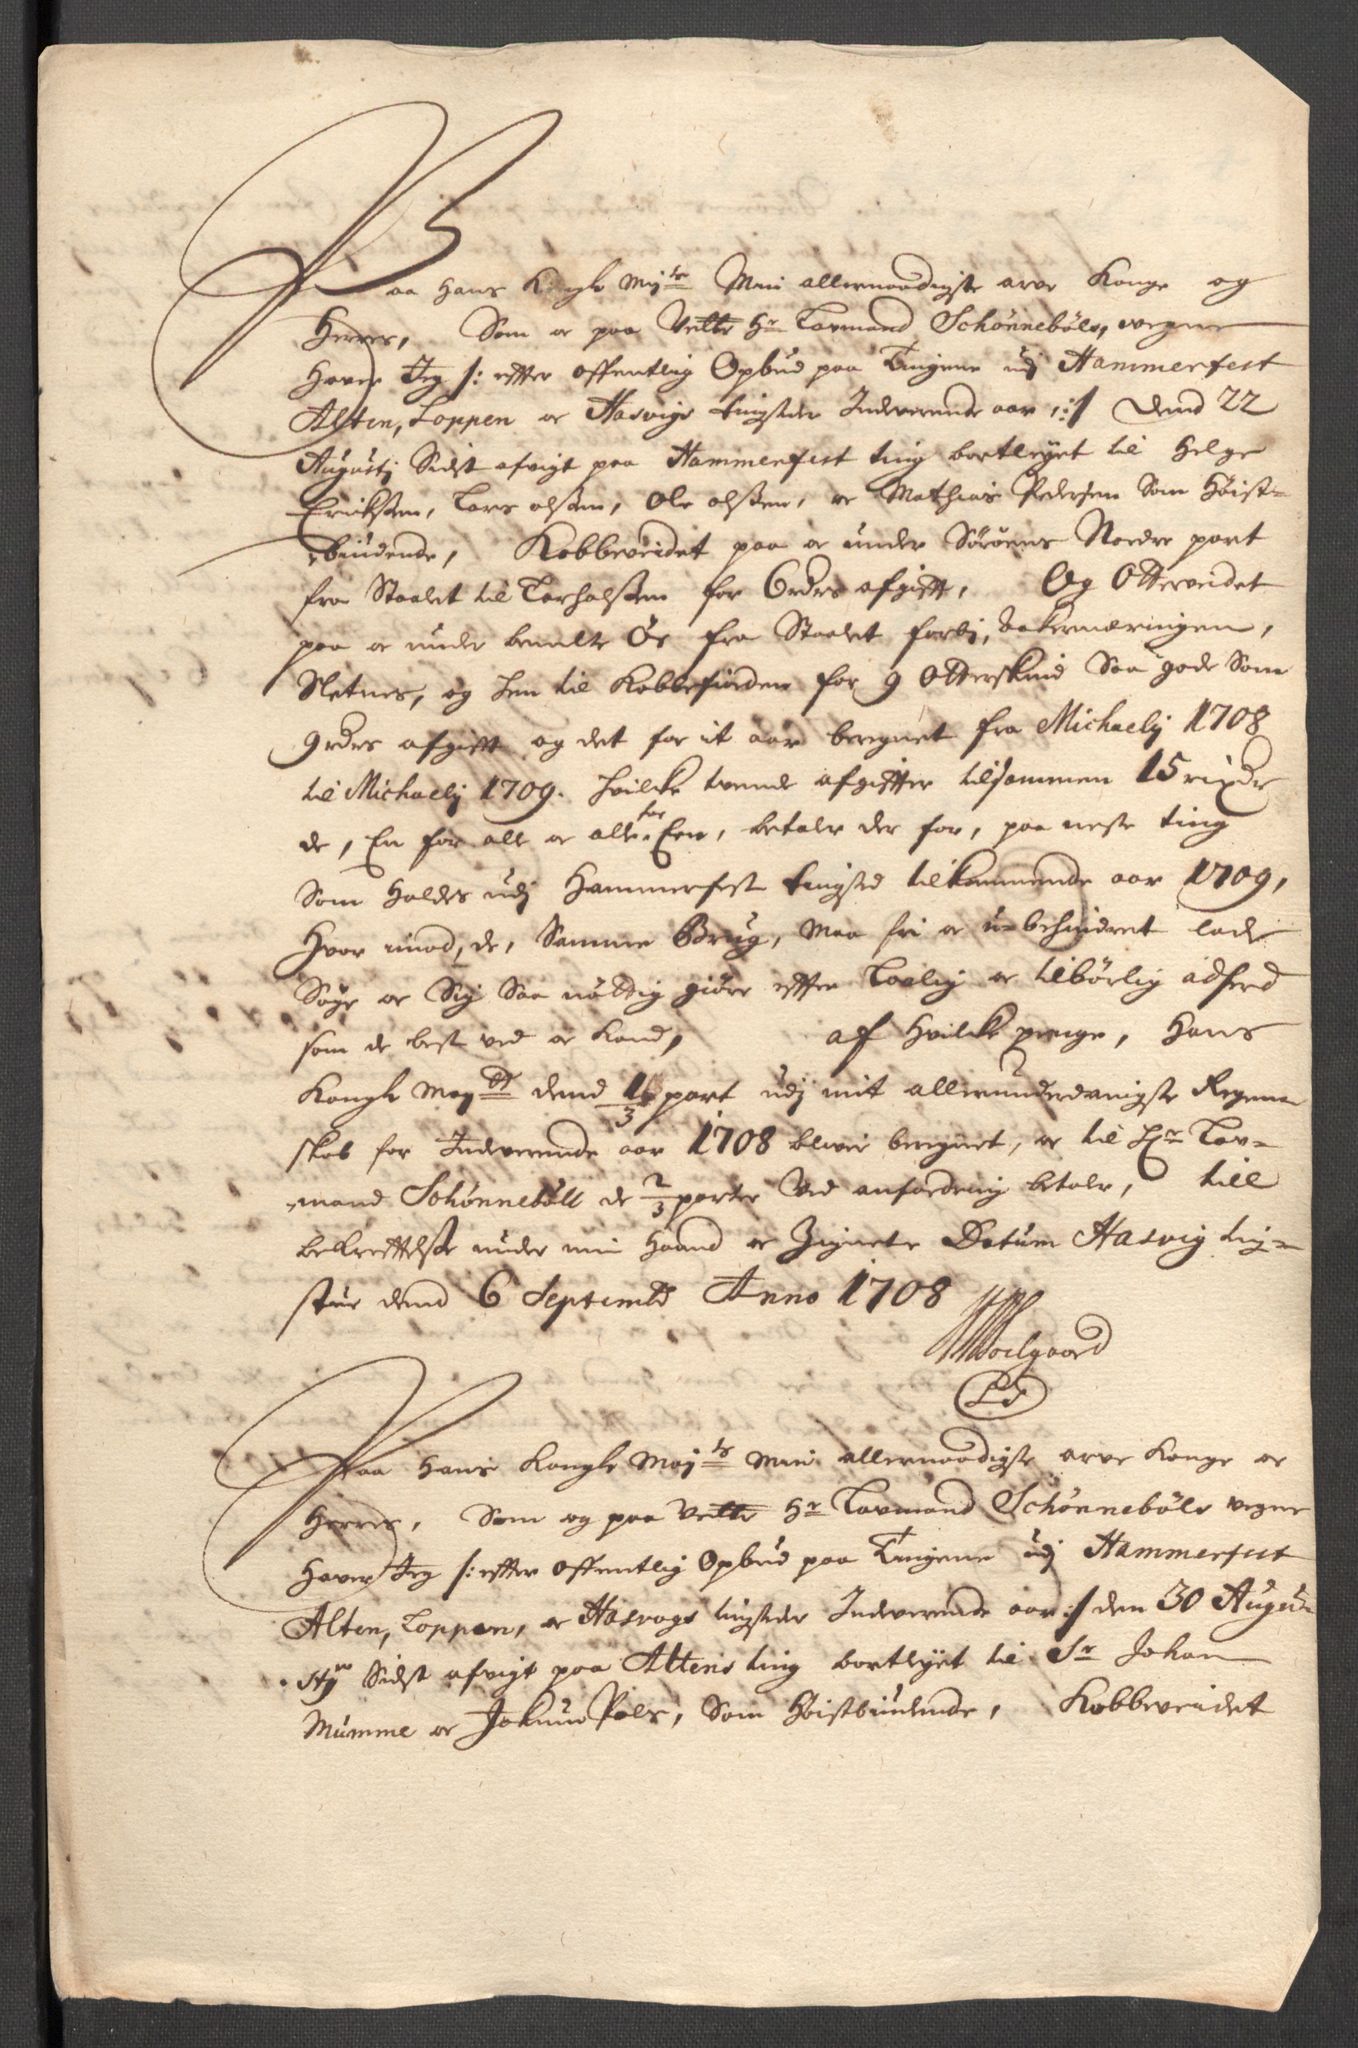 Paa Hans Kongl: May:ts Min allernaadigste arve Konge og
Herres, Som oc paa Velb:e Hr Lavmand Schønnebøls, vegne
Haver Jeg /: efter offentlig Opbud paa Tingene udj Hammerfest
Alten, Loppen oc Hasvigs tingsteder Indeverende aar :/ Dend 22
Augustj Sidst afvigt paa Hammerfest ting bortleyet til Helge
Erichsen, Lars olssen, Ole olssen, oc Mathias Pedersen Som Høist-
biudende, Kobbeveidet paa oc under Sørøens Nordre part
fra Staalet til Tarhalssen for 6 rdrs afgift, Og Otterveidet
paa oc under bemelte Øe fra Staalet forbi, Bakernæringen,
Sletnes, og hen til Kobbefiorden for 9 Otterskind Saa gode Som
9 rdrs afgift og det for it aar beregnet fra Michaelj 1708
til Michaelj 1709. Hvilcke tvende afgiffter tilsammen 15 rixdr
de, En for alle oc alle for Een, betaler der for, paa neste ting
Som Holdes udj Hammerfest tingsted tilkommende aar 1709,
Hvor imod, de, Samme Brug, maa fri oc u-behindret lade
Søge oc Sig Saa nøttig giøre efter Lovlig oc tilbørlig adferd
som de best ved oc Kand, af Hvilcke penge, Hans
Kongl: May:tt dend 1/3 part udj mit allerunderdanigste Regen-
skab for Indeverende aar 1708 bliver beregnet, oc til Hr Lav-
mand Schønnebøll de 2/3 parter Ved anfordring betaler, till
bekreftelse under min Haand oc Zignete Datum Hasvig ting-
stue dend 6 Septembr Anno 1708
Soelgaard
L S
Paa Hans Kongl: May:ts min allernaadigste arve Konge oc
Herres, Som og paa Velb:e Hr Lavmand Schønnebøls vegne
Haver Jeg /: efter offentlig Opbud paa Tingene udj Hammerfest
Alten, Loppen, oc Hasvogs tingsteder Indeverende aar :/ den 30 Augu-
stj Sidst afvigt paa Altens ting bortleyet til Sr Johan
Mumme oc Johan Pølr, Som Høistbiudende, Kobbeveidet